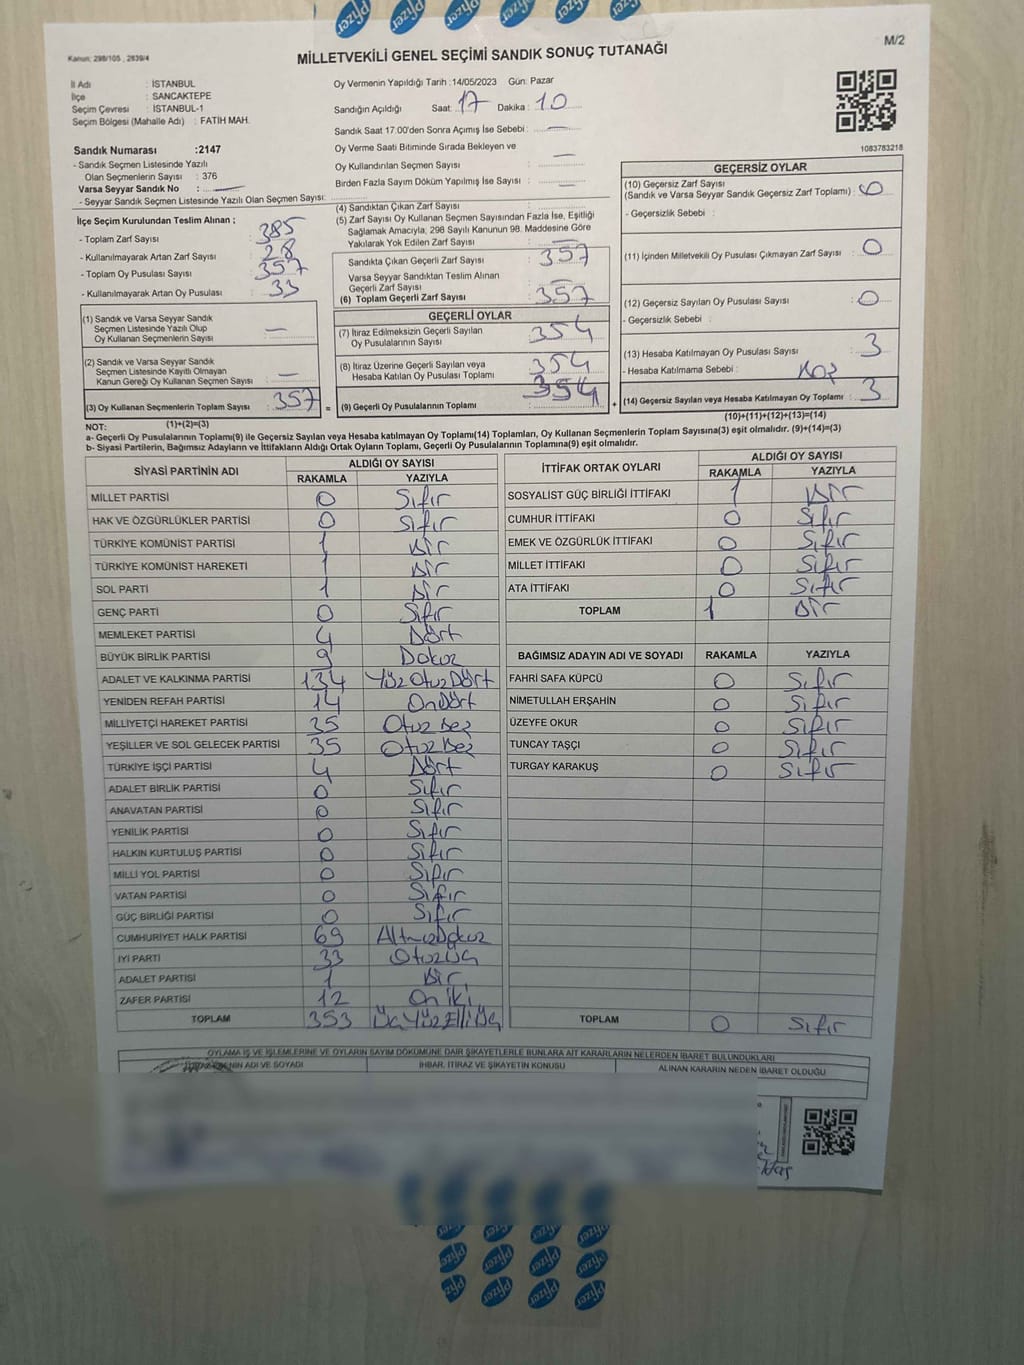 Pfizer Pfizer Pfizer Pfizer Pfizer Pfizer
Kanun: 298/105 , 2839/4
MİLLETVEKİLİ GENEL SEÇİMİ SANDIK SONUÇ TUTANAĞI
M/2
İl Adı : İSTANBUL
İlçe : SANCAKTEPE
Seçim Çevresi : İSTANBUL-1
Seçim Bölgesi (Mahalle Adı) : FATİH MAH.
Sandık Numarası :2147
- Sandık Seçmen Listesinde Yazılı
Olan Seçmenlerin Sayısı : 376
Varsa Seyyar Sandık No : —
- Seyyar Sandık Seçmen Listesinde Yazılı Olan Seçmen Sayısı:
Oy Vermenin Yapıldığı Tarih :14/05/2023 Gün: Pazar
Sandığın Açıldığı Saat: 17 Dakika : 10
Sandık Saat 17.00'den Sonra Açımış İse Sebebi : —
Oy Verme Saati Bitiminde Sırada Bekleyen ve
Oy Kullandırılan Seçmen Sayısı : —
Birden Fazla Sayım Döküm Yapılmış İse Sayısı : —
1083783218
İlçe Seçim Kurulundan Teslim Alınan ;
- Toplam Zarf Sayısı : 385
- Kullanılmayarak Artan Zarf Sayısı : 28
- Toplam Oy Pusulası Sayısı : 357
- Kullanılmayarak Artan Oy Pusulası : 33
(1) Sandık ve Varsa Seyyar Sandık
Seçmen Listesinde Yazılı Olup
Oy Kullanan Seçmenlerin Sayısı : —
(2) Sandık ve Varsa Seyyar Sandık
Seçmen Listesinde Kayıtlı Olmayan
Kanun Gereği Oy Kullanan Seçmen Sayısı : —
(3) Oy Kullanan Seçmenlerin Toplam Sayısı : 357
(1)+(2)=(3)
(4) Sandıktan Çıkan Zarf Sayısı :
(5) Zarf Sayısı Oy Kullanan Seçmen Sayısından Fazla İse, Eşitliği
Sağlamak Amacıyla; 298 Sayılı Kanunun 98. Maddesine Göre
Yakılarak Yok Edilen Zarf Sayısı : —
Sandıkta Çıkan Geçerli Zarf Sayısı : 357
Varsa Seyyar Sandıktan Teslim Alınan
Geçerli Zarf Sayısı : —
(6) Toplam Geçerli Zarf Sayısı : 357
GEÇERLİ OYLAR
(7) İtiraz Edilmeksizin Geçerli Sayılan
Oy Pusulasının Sayısı : 354
(8) İtiraz Üzerine Geçerli Sayılan veya
Hesaba Katılan Oy Pusulası Toplamı : 354
= (9) Geçerli Oy Pusulalarının Toplamı : 354
GEÇERSİZ OYLAR
(10) Geçersiz Zarf Sayısı
(Sandık ve Varsa Seyyar Sandık Geçersiz Zarf Toplamı) : 0
- Geçersizlik Sebebi :
(11) İçinden Milletvekili Oy Pusulası Çıkmayan Zarf Sayısı : 0
(12) Geçersiz Sayılan Oy Pusulası Sayısı : 0
- Geçersizlik Sebebi :
(13) Hesaba Katılmayan Oy Pusulası Sayısı : 3
- Hesaba Katılmama Sebebi : Boş
+ (14) Geçersiz Sayılan veya Hesaba Katılmayan Oy Toplamı : 3
(10)+(11)+(12)+(13)=(14)
NOT:
a- Geçerli Oy Pusulalarının Toplamı(9) ile Geçersiz Sayılan veya Hesaba katılmayan Oy Toplamı(14) Toplamları, Oy Kullanan Seçmenlerin Toplam Sayısına(3) eşit olmalıdır. (9)+(14)=(3)
b- Siyasi Partilerin, Bağımsız Adayların ve İttifakların Aldığı Ortak Oyların Toplamı, Geçerli Oy Pusulalarının Toplamına(9) eşit olmalıdır.
SİYASİ PARTİNİN ADI ALDIĞI OY SAYISI
RAKAMLA YAZIYLA
MİLLET PARTİSİ 0 Sıfır
HAK VE ÖZGÜRLÜKLER PARTİSİ 0 Sıfır
TÜRKİYE KOMÜNİST PARTİSİ 1 Bir
TÜRKİYE KOMÜNİST HAREKETİ 1 Bir
SOL PARTİ 1 Bir
GENÇ PARTİ 0 Sıfır
MEMLEKET PARTİSİ 4 Dört
BÜYÜK BİRLİK PARTİSİ 9 Dokuz
ADALET VE KALKINMA PARTİSİ 134 YüzOtuzDört
YENİDEN REFAH PARTİSİ 14 OnDört
MİLLİYETÇİ HAREKET PARTİSİ 35 Otuz Beş
YEŞİLLER VE SOL GELECEK PARTİSİ 35 Otuz Beş
TÜRKİYE İŞÇİ PARTİSİ 4 Dört
ADALET BİRLİK PARTİSİ 0 Sıfır
ANAVATAN PARTİSİ 0 Sıfır
YENİLİK PARTİSİ 0 Sıfır
HALKIN KURTULUŞ PARTİSİ 0 Sıfır
MİLLİ YOL PARTİSİ 0 Sıfır
VATAN PARTİSİ 0 Sıfır
GÜÇ BİRLİĞİ PARTİSİ 0 Sıfır
CUMHURİYET HALK PARTİSİ 69 AltmışDokuz
İYİ PARTİ 33 OtuzÜç
ADALET PARTİSİ 1 Bir
ZAFER PARTİSİ 12 On iki
TOPLAM 353 ÜçYüzElliÜç
İTTİFAK ORTAK OYLARI ALDIĞI OY SAYISI
RAKAMLA YAZIYLA
SOSYALİST GÜÇ BİRLİĞİ İTTİFAKI 1 Bir
CUMHUR İTTİFAKI 0 Sıfır
EMEK VE ÖZGÜRLÜK İTTİFAKI 0 Sıfır
MİLLET İTTİFAKI 0 Sıfır
ATA İTTİFAKI 0 Sıfır
TOPLAM 1 Bir
BAĞIMSIZ ADAYIN ADI VE SOYADI RAKAMLA YAZIYLA
FAHRİ SAFA KÜPCÜ 0 Sıfır
NİMETULLAH ERŞAHİN 0 Sıfır
ÜZEYFE OKUR 0 Sıfır
TUNCAY TAŞÇI 0 Sıfır
TURGAY KARAKUŞ 0 Sıfır
TOPLAM 0 Sıfır
OYLAMA İŞ VE İŞLEMLERİNE VE OYLARIN SAYIM DÖKÜMÜNE DAİR ŞİKAYETLERLE BUNLARA AİT KARARLARIN NELERDEN İBARET BULUNDUKLARI
ADI VE SOYADI İHBAR, İTİRAZ VE ŞİKAYETİN KONUSU ALINAN KARARIN NEDEN İBARET OLDUĞU
Pfizer Pfizer Pfizer Pfizer
Pfizer Pfizer Pfizer Pfizer
Pfizer Pfizer Pfizer Pfizer